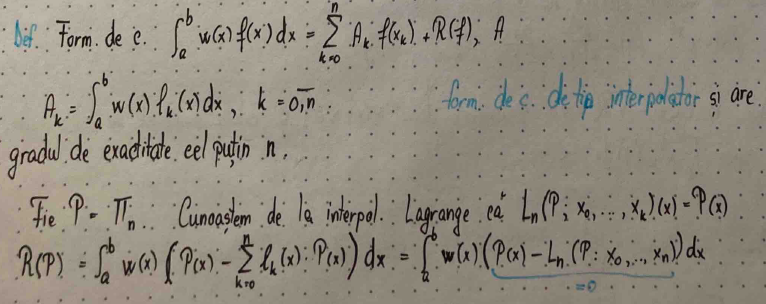 Def. Form. de c. ∫_a^b w(x) f(x) dx = ∑_{k=0}^n A_k f(x_k) + R(f), A
A_k = ∫_a^b w(x) l_k(x) dx, k = \overline{0,n}. form. de c. de tip interpolator și are
gradul de exactitate cel puțin n.
Fie P = Π_n. Cunoaștem de la interpol. Lagrange că L_n(P; x_0, ..., x_k)(x) = P(x)
R(P) = ∫_a^b w(x) (P(x) - ∑_{k=0}^n l_k(x) P(x)) dx = ∫_a^b w(x) (P(x) - L_n(P; x_0, .., x_n)) dx
=0